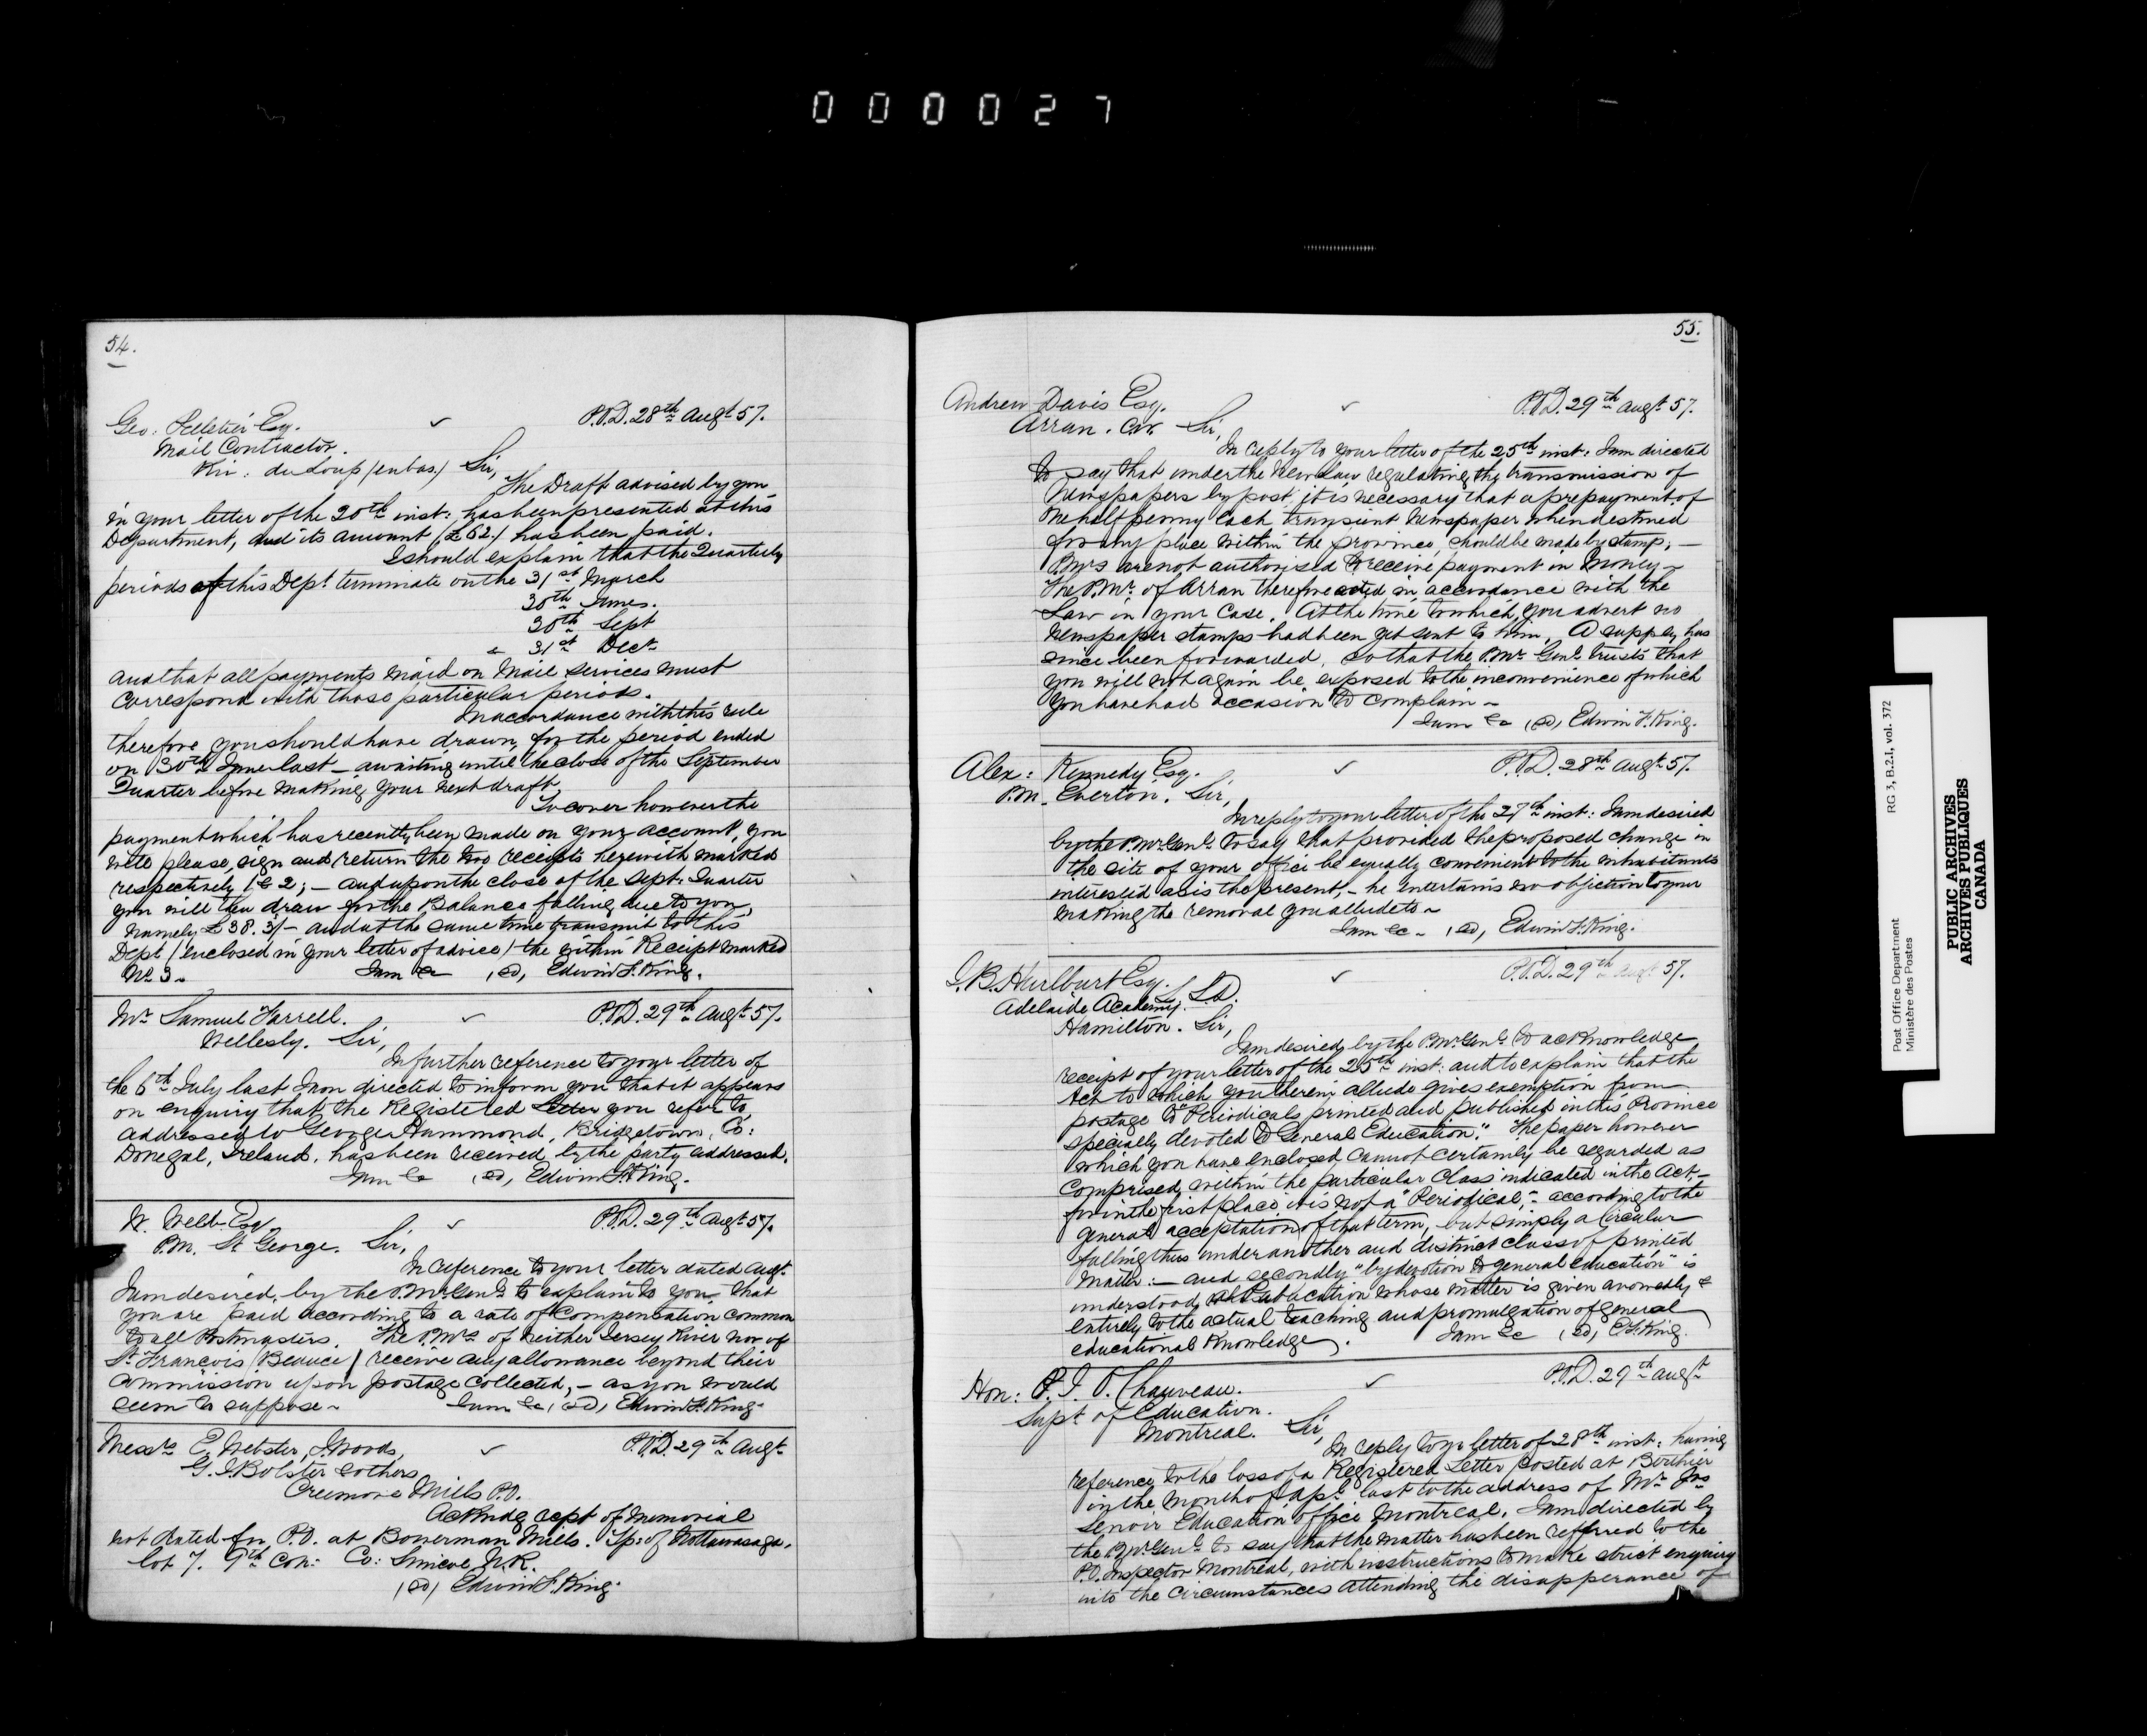 000027
54.
Geo: Pelletier Esq. P.O.D. 28th Augt 57.
Mail Contractor.
Riv: du Loup (en bas) Sir,
The Draft advised by you
in your letter of the 20th inst: has been presented at this
Department, and its amount (£62.) has been paid.
I should explain that the Quarterly
periods of this Dept. terminate on the 31st March
30th June.
30th Sept
& 31st Decr
and that all payments made on Mail Services must
correspond with those particular periods.
In accordance with this rule
therefore you should have drawn, for the period ended
on 30th June last – awaiting until the close of the September
Quarter before making your next draft.
To cover however the
payment which has recently been made on your account, you
will please, sign and return the two receipts herewith marked
respectively 1 & 2; – and upon the close of the Sept. Quarter
you will then draw for the Balance falling due to you,
namely £38.3/– and at the same time transmit to this
Dept (enclosed in your letter of advice) the within Receipt marked
No 3. I am &c (sd) Edwin F. King.
Mr Samuel Farrell. P.O.D. 29th Augt 57.
Wellesly. Sir,
In further reference to your letter of
the 6th July last I am directed to inform you that it appears
on enquiry that the Registered Letter you refer to,
addressed to George Hammond, Bridgetown, Co:
Donegal, Ireland, has been received by the party addressed.
I am &c (sd) Edwin F. King.
W. Webb Esq P.O.D. 29th Augt 57.
P.M. St George. Sir,
In reference to your letter dated Augt
I am desired, by the P. Mr Genl to explain to you that
you are paid according to a rate of Compensation common
to all Postmasters. The P. Mrs of neither Jersey River nor of
St Francois (Beauce) receive any allowance beyond their
Commission upon postage collected, – as you would
seem to suppose – I am &c, (sd) Edwin F. King.
Messrs E. Webster, J. Woods, P.O.D. 29th Augt
G. I. Bolster & others
Creemore Mills P.O.
Ackndg rcpt of Memorial
not dated for P.O. at Bowerman Mills. Tp: of Nottawasaga.
lot 7. 9th Con: Co: Simcoe N.R.
(sd) Edwin F. King.
55.
Andrew Davis Esq. P.O.D. 29th Augt 57.
Arran. C.W. Sir,
In reply to your letter of the 25th inst: I am directed
to say that under the New Law regulating the transmission of
Newspapers by post, it is necessary that a prepayment of
one halfpenny each, transient Newspaper when destined
for any place within the province, should be made by stamp; –
P. Mrs are not authorised to receive payment in Money –
The P. Mr. of Arran therefore acted in accordance with the
Law in your Case. At the time to which you advert no
Newspaper stamps had been yet sent to him. A supply has
since been forwarded, so that the P. Mr Genl trusts that
you will not again be exposed to the inconvenience of which
you have had occasion to complain –
I am &c (sd) Edwin F. King.
Alex: Kennedy Esq. P.O.D. 28th Augt 57.
P.M. Everton. Sir,
In reply to your letter of the 27th inst: I am desired
by the P. Mr. Genl. to say that provided the proposed change in
the site of your office be equally convenient to the inhabitants
interested as is the present, – he entertains no objection to your
making the removal you allude to –
I am &c – (sd) Edwin F. King.
I. B. Hurlburt Esq. L.L.D. P.O.D. 29th Augt 57.
Adelaide Academy.
Hamilton. Sir,
I am desired by the P. Mr Genl to acknowledge
receipt of your letter of the 25th inst: and to explain that the
Act to which you therein allude gives exemption from
postage to "Periodicals printed and published in this Province
specially devoted to General Education." The paper however
which you have enclosed cannot certainly be regarded as
Comprised, within the particular Class indicated in the Act, –
for in the first place, it is not a "Periodical," according to the
general acceptation of that term, but simply a Circular
falling thus under another and distinct class of printed
matter: – and secondly "by devotion to general education" is
understood, a Publication whose matter is given avowedly &
entirely to the actual teaching and promulgation of general
educational Knowledge. I am &c (sd) E. F. King.
Hon: P. J. O. Chauveau. P.O.D. 29th Augt
Supt of Education.
Montreal. Sir,
In reply to yr letter of 28th inst: having
reference to the loss of a Registered Letter posted at Berthier
in the Month of Apl. last to the address of Mr Jas
Lenoir Education office Montreal. I am directed by
the P. Mr Genl to say that the matter has been reffered to the
P.O. Inspector Montreal, with instructions to make strict enquiry
into the circumstances attending the disapperance of
RG 3, B.2.I, vol. 372
Post Office Department
Ministère des Postes
PUBLIC ARCHIVES
ARCHIVES PUBLIQUES
CANADA